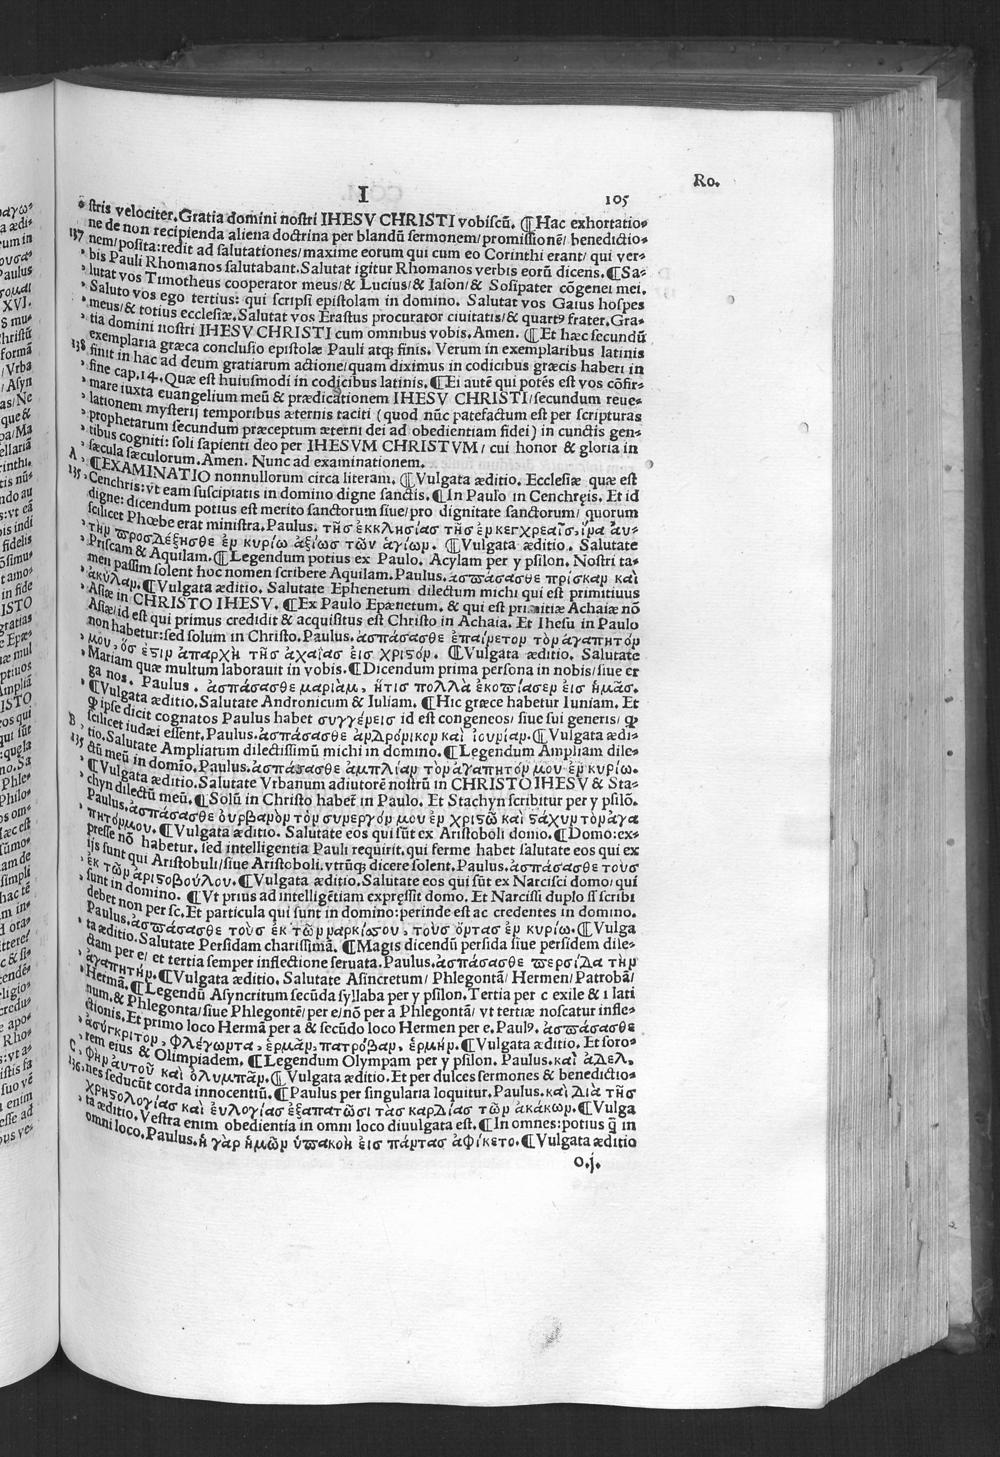 Ro.
I
105
stris velociter. Gratia domini nostri IHESV CHRISTI vobiscũ. ¶ Hac exhortatio-
ne de non recipienda aliena doctrina per blandũ sermonem/promissionẽ/ benedictio-
137 nem/posita: redit ad salutationes/maxime eorum qui cum eo Corinthi erant/ qui ver-
bis Pauli Rhomanos salutabant. Salutat igitur Rhomanos verbis eorũ dicens. ¶ Sa-
lutat vos Timotheus cooperator meus/& Lucius/& Iason/& Sosipater cõgenei mei.
Saluto vos ego tertius: qui scripsi epistolam in domino. Salutat vos Gaius hospes
meus/& totius ecclesiæ. Salutat vos Erastus procurator ciuitatis/& quartꝰ frater. Gra-
tia domini nostri IHESV CHRISTI cum omnibus vobis. Amen. ¶ Et hæc secundũ
exemplaria græca conclusio epistolæ Pauli atq; finis. Verum in exemplaribus latinis
138 finit in hac ad deum gratiarum actione/quam diximus in codicibus græcis haberi in
fine cap. 14. Quæ est huiusmodi in codicibus latinis. ¶ Ei autẽ qui potẽs est vos cõfir-
mare iuxta euangelium meũ & prædicationem IHESV CHRISTI/secundum reue-
lationem mysterij temporibus æternis taciti (quod nũc patefactum est per scripturas
prophetarum secundum præceptum æterni dei ad obedientiam fidei) in cunctis gen-
tibus cogniti: soli sapienti deo per IHESVM CHRISTVM/ cui honor & gloria in
sæcula sæculorum. Amen. Nunc ad examinationem.
A ¶ EXAMINATIO nonnullorum circa literam. ¶ Vulgata æditio. Ecclesiæ quæ est
135 Cenchris: vt eam suscipiatis in domino digne sanctis. ¶ In Paulo in Cenchreis. Et id
digne: dicendum potius est merito sanctorum siue/pro dignitate sanctorum/ quorum
scilicet Phœbe erat ministra. Paulus. τῆς ἐκκλησίας τῆς ἐν κεγχρεαῖς, ἵνα αυ-
τὴν προσδέξησθε ἐν κυρίω ἀξίως τῶν ἁγίων. ¶ Vulgata æditio. Salutate
Priscam & Aquilam. ¶ Legendum potius ex Paulo. Acylam per y psilon. Nostri ta-
men passim solent hoc nomen scribere Aquilam. Paulus. ἀσπάσασθε πρίσκαν καὶ
ἀκύλαν. ¶ Vulgata æditio. Salutate Ephenetum dilectum michi qui est primitiuus
Asiæ in CHRISTO IHESV. ¶ Ex Paulo Epænetum. & qui est primitiæ Achaiæ nõ
Asiæ/id est qui primus credidit & acquisitus est Christo in Achaia. Et Ihesu in Paulo
non habetur: sed solum in Christo. Paulus. ἀσπάσασθε ἐπαίνετον τὸν ἀγαπητόν
μου, ὅς ἐστιν ἀπαρχὴ τῆς ἀχαΐας εἰς χριστόν. ¶ Vulgata æditio. Salutate
Mariam quæ multum laborauit in vobis. ¶ Dicendum prima persona in nobis/siue er
ga nos. Paulus. ἀσπάσασθε μαριὰμ, ἥτις πολλὰ ἐκοπίασεν εἰς ἡμᾶς.
¶ Vulgata æditio. Salutate Andronicum & Iuliam. ¶ Hic græce habetur Iuniam. Et
ꝙ ipse dicit cognatos Paulus habet συγγένεις id est congeneos/ siue sui generis/ ꝙ
B scilicet iudæi essent. Paulus. ἀσπάσασθε ἀνδρόνικον καὶ ἰουνίαν. ¶ Vulgata ædi-
tio. Salutate Ampliatum dilectissimũ michi in domino. ¶ Legendum Ampliam dile-
135 ctũ meũ in domĩo. Paulus. ἀσπάσασθε ἀμπλίαν τὸν ἀγαπητόν μου ἐν κυρίω.
¶ Vulgata æditio. Salutate Vrbanum adiutorẽ nostrũ in CHRISTO IHESV & Sta-
chyn dilectũ meũ. ¶ Solũ in Christo habet̃ in Paulo. Et Stachyn scribitur per y psilõ.
Paulus. ἀσπάσασθε ὀυρβανὸν τὸν συνεργόν μου ἐν χριστῶ καὶ στάχυν τὸν ἀγα
πητόν μου. ¶ Vulgata æditio. Salutate eos qui sũt ex Aristoboli domo. ¶ Domo: ex-
presse nõ habetur. sed intelligentia Pauli requirit. qui ferme habet salutate eos qui ex
ijs sunt qui Aristobuli/siue Aristoboli. vtrũq; dicere solent. Paulus. ἀσπάσασθε τοὺς
ἐκ τῶν ἀριστοβούλου. ¶ Vulgata æditio. Salutate eos qui sũt ex Narcisci domo/qui
sunt in domino. ¶ Vt prius ad intelligẽtiam expressit domo. Et Narcissi duplo ss scribi
debet non per sc. Et particula qui sunt in domino: perinde est ac credentes in domino.
Paulus. ἀσπάσασθε τοὺς ἐκ τῶν ναρκίσσου, τοὺς ὄντας ἐν κυρίω. ¶ Vulga
ta æditio. Salutate Persidam charissimã. ¶ Magis dicendũ persida siue persidem dile-
ctam per e/ et tertia semper inflectione seruata. Paulus. ἀσπάσασθε περσίδα τὴν
ἀγαπητήν. ¶ Vulgata æditio. Salutate Asincretum/ Phlegontã/ Hermen/ Patrobã/
Hermã. ¶ Legendũ Asyncritum secũda syllaba per y psilon. Tertia per c exile & ı lati
num. & Phlegonta/siue Phlegontẽ/ per e/nõ per a Phlegontã/ vt tertiæ noscatur infle-
ctionis. Et primo loco Hermã per a & secũdo loco Hermen per e. Paulꝰ. ἀσπάσασθε
ἀσύγκριτον, φλέγωντα, ἑρμᾶν, πατρόβαν, ἑρμῆν. ¶ Vulgata æditio. Et soro-
C rem eius & Olimpiadem. ¶ Legendum Olympam per y psilon. Paulus. καὶ ἀδελ-
φὴν αυτοῦ καὶ ὀλυμπᾶν. ¶ Vulgata æditio. Et per dulces sermones & benedictio-
136 nes seducũt corda innocentiũ. ¶ Paulus per singularia loquitur. Paulus. καὶ διὰ τῆς
χρηστολογίας καὶ ἐυλογίας ἐξαπατῶσι τὰς καρδίας τῶν ἀκάκων. ¶ Vulga
ta æditio. Vestra enim obedientia in omni loco diuulgata est. ¶ In omnes: potius q̃ in
omni loco. Paulus. ἡ γὰρ ἡμῶν ὑπακοὴ εἰς πάντας ἀφίκετο. ¶ Vulgata æditio
o.j.